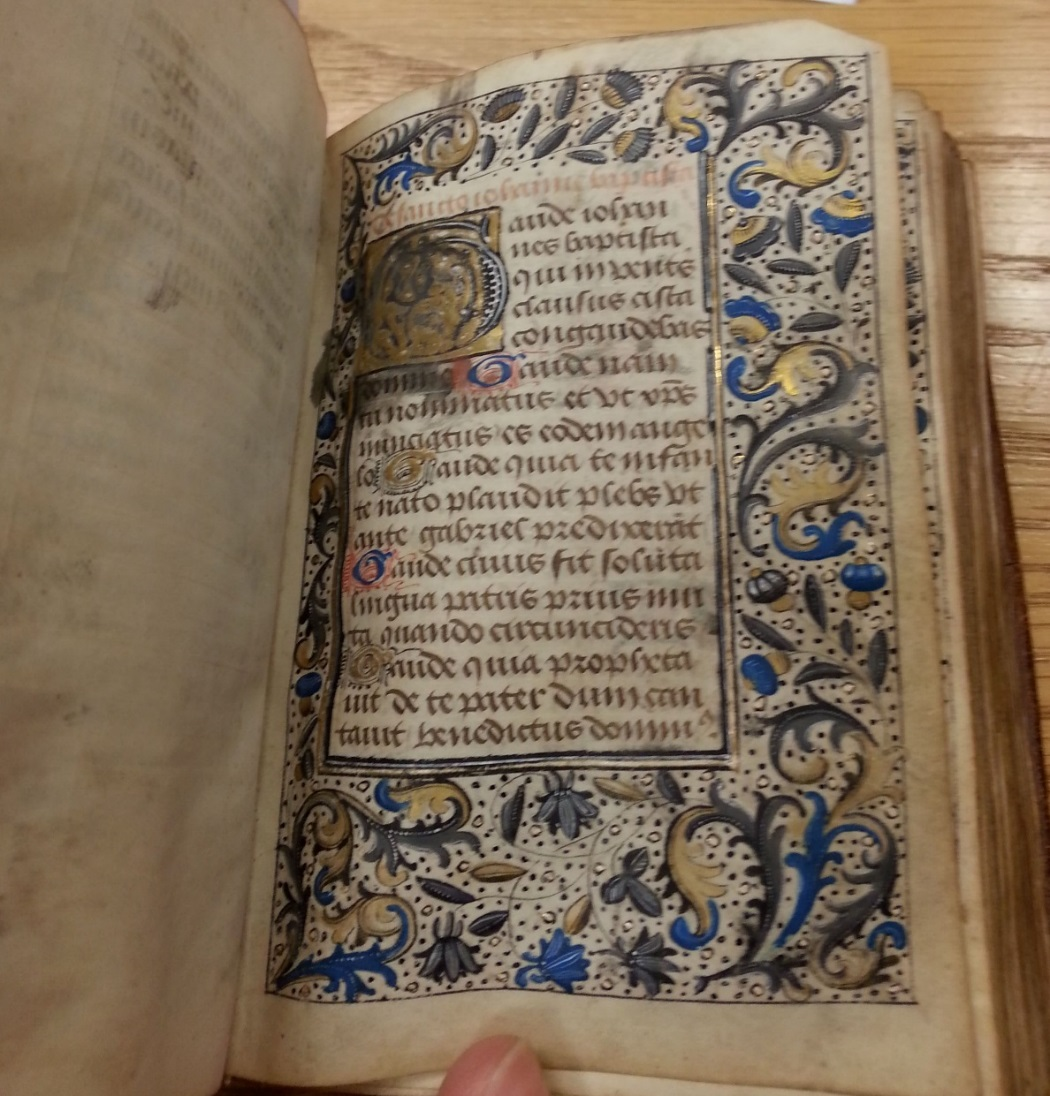 De sancto iohanne baptista
Gaude iohan
nes baptista
qui in ventris
clausus cista
congaudebas
domino Gaude nam
tu nominatus et vt vp̄s
nunciatus es eodem ange
lo Gaude quia te infan
te nato plaudit plebs vt
ante gabriel predixerāt
Gaude cuius fit soluta
lingua patris prius mu
ta quando circuncideris
Gaude quia propheta
uit de te pater dum can
tauit benedictus domin⁹